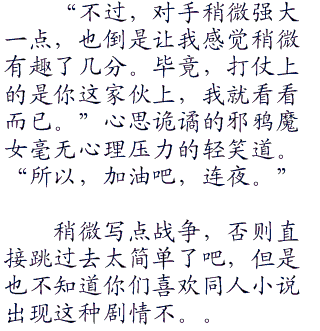 “不过，对手稍微强大
一点，也倒是让我感觉稍微
有趣了几分。毕竟，打仗上
的是你这家伙上，我就看看
而已。”心思诡谲的邪鸦魔
女毫无心理压力的轻笑道。
“所以，加油吧，连夜。”
稍微写点战争，否则直
接跳过去太简单了吧，但是
也不知道你们喜欢同人小说
出现这种剧情不。。